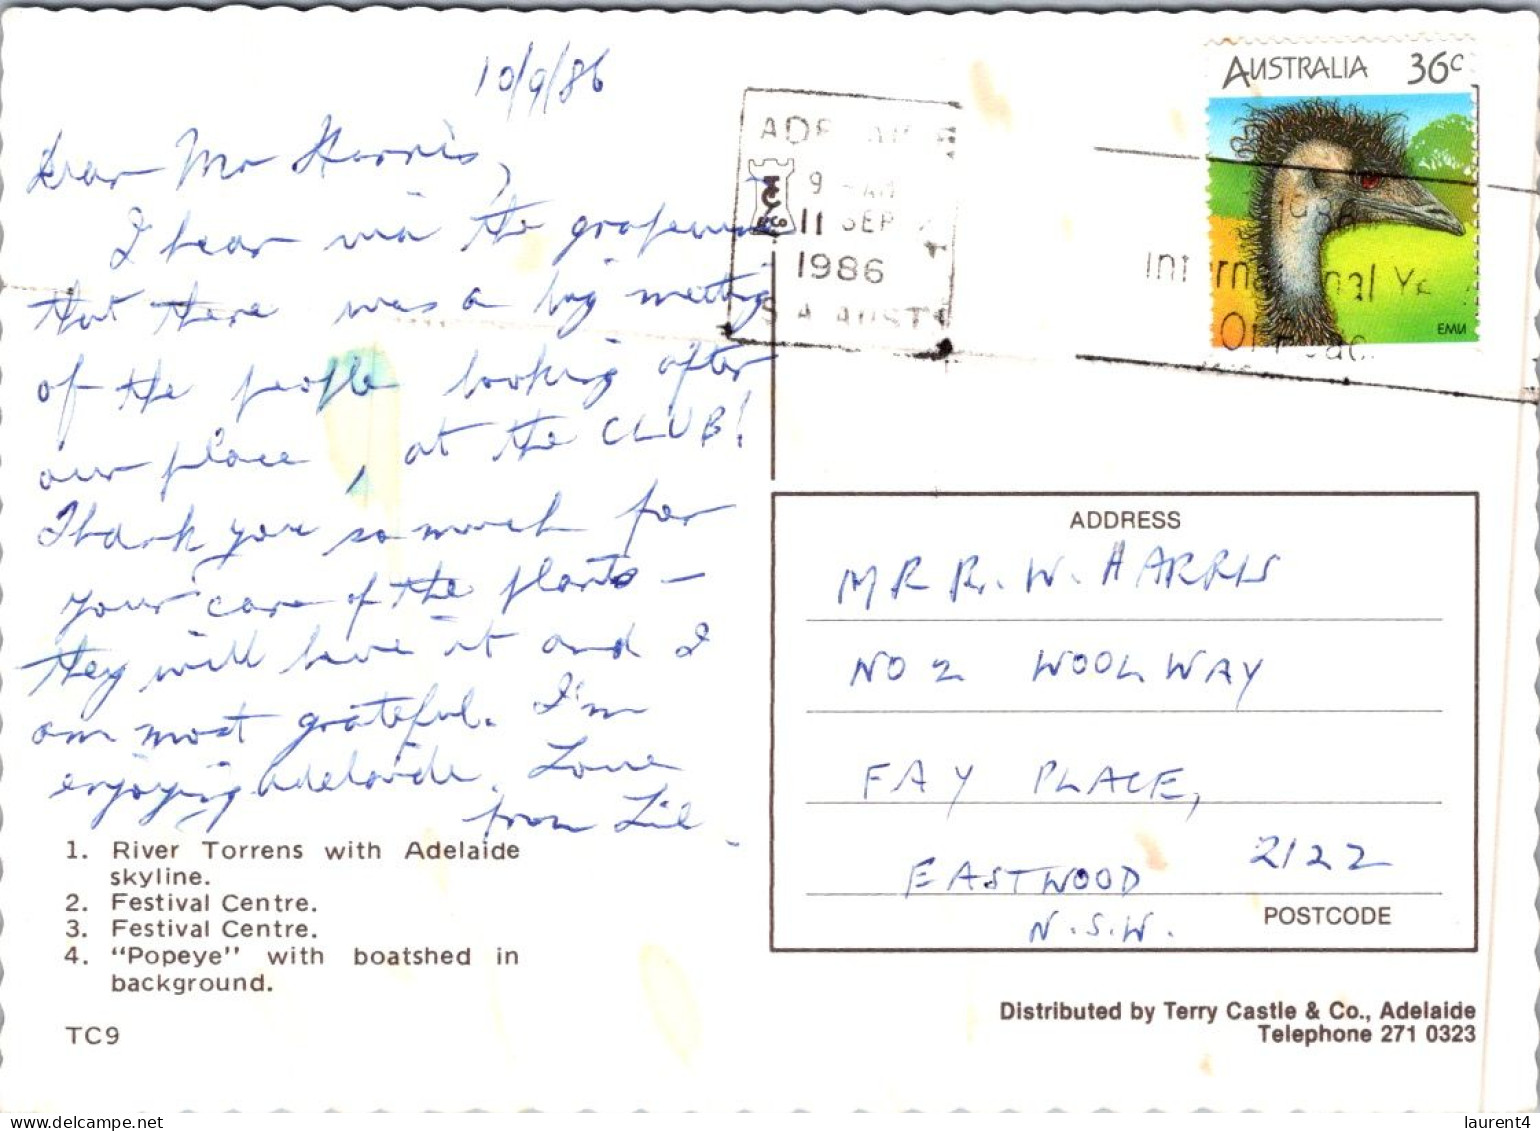 10/9/86
Dear Mr Harris,
I hear via the grapevine
that there was a big meeting
of the people looking after
our place, at the CLUB!
Thank you so much for
your care of the plants –
they will love it and I
am most grateful. I'm
enjoying Adelaide. Love
from Lil.
1. River Torrens with Adelaide
skyline.
2. Festival Centre.
3. Festival Centre.
4. "Popeye" with boatshed in
background.
TC9
9 AM
11 SEP
1986
S.A. AUST
AUSTRALIA 36c
1986
International Ye
Of Peac
EMU
ADDRESS
MR R. W. HARRIS
NO 2 WOOLWAY
FAY PLACE,
EASTWOOD 2122
N.S.W.
POSTCODE
Distributed by Terry Castle & Co., Adelaide
Telephone 271 0323
delcampe.net
laurent4